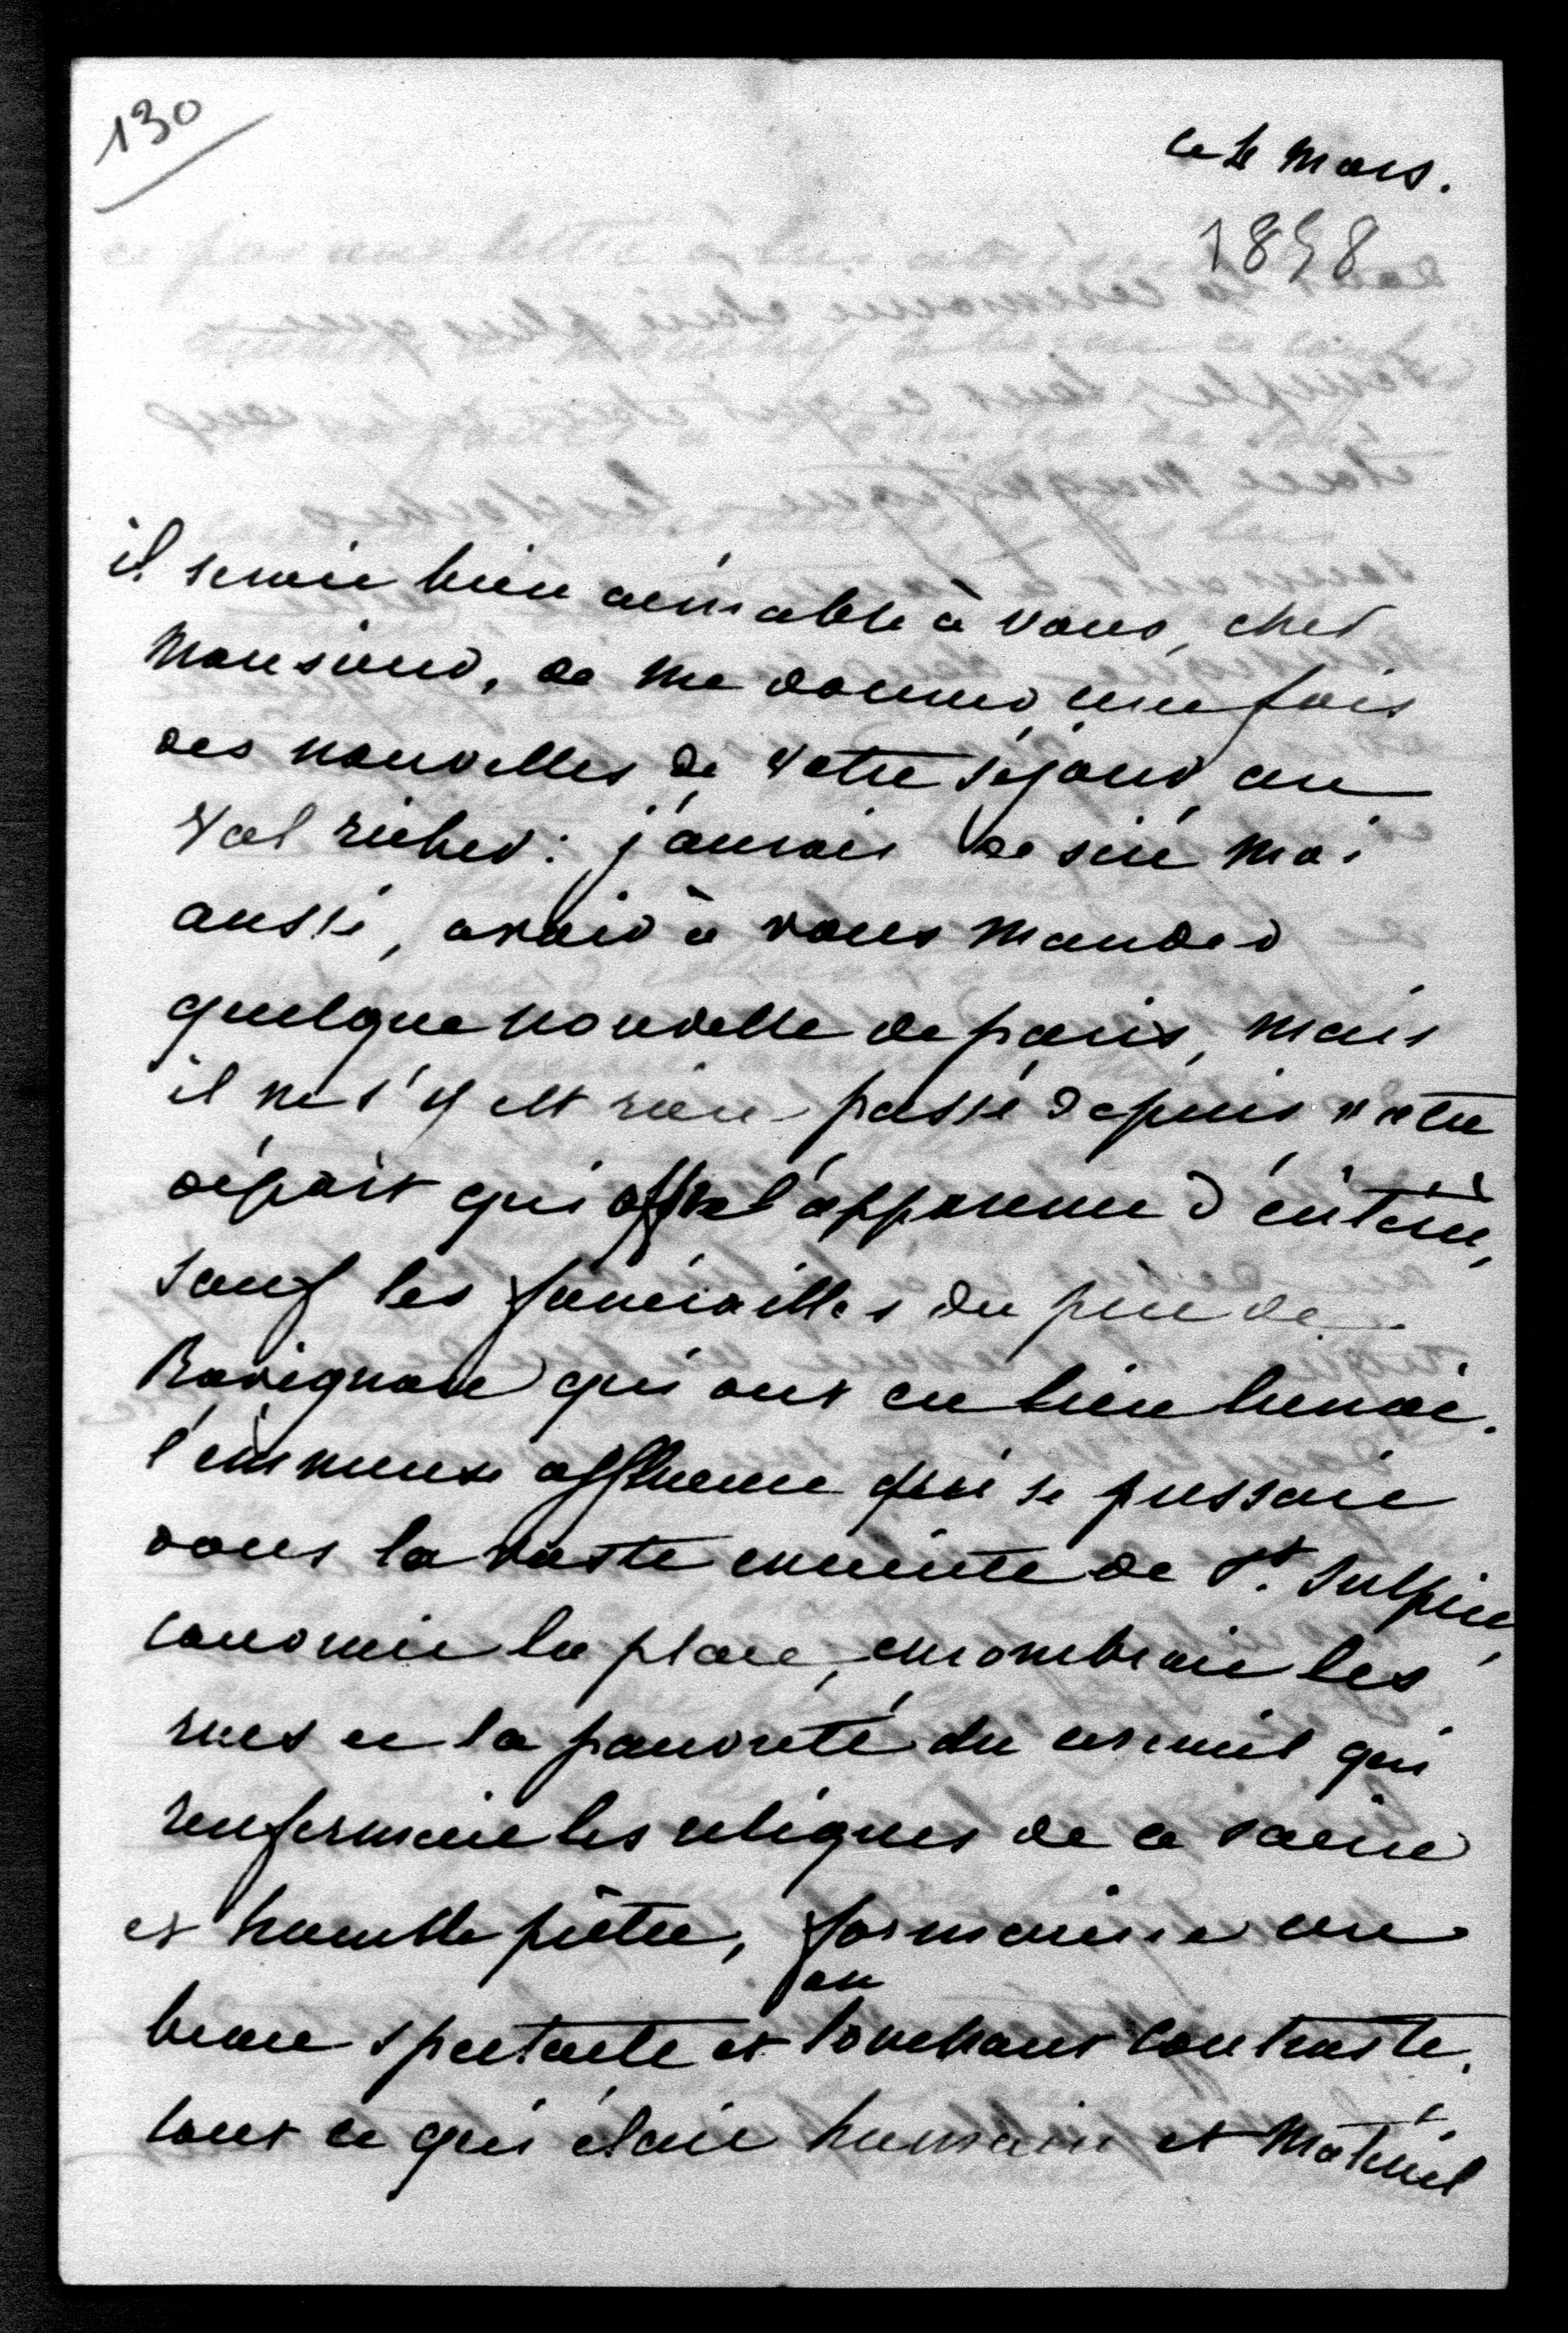 130
ce 4 mars.
1858
il seroit bien aimable à vous, cher
Monsieur, de me donner une fois
des nouvelles de votre séjour au
Val richer : j'aurois desiré moi
aussi, avoir à vous mander
quelque nouvelle de paris, mais
il ne s'y est rien passé depuis votre
départ qui offre l'apparence d'intérêt,
sauf les funérailles du père de
Ravignan qui ont eu lieu hier.
l'immense affluence qui se pressoit
dans la vaste enceinte de St. Sulpice,
couvroit la place, encombroit les
rues et la pauvreté du cercueil qui
renfermoit les reliques de ce saint
et humble prêtre, formoient un
beau spectacle et un touchant contraste.
tout ce qui étoit humain et matériel